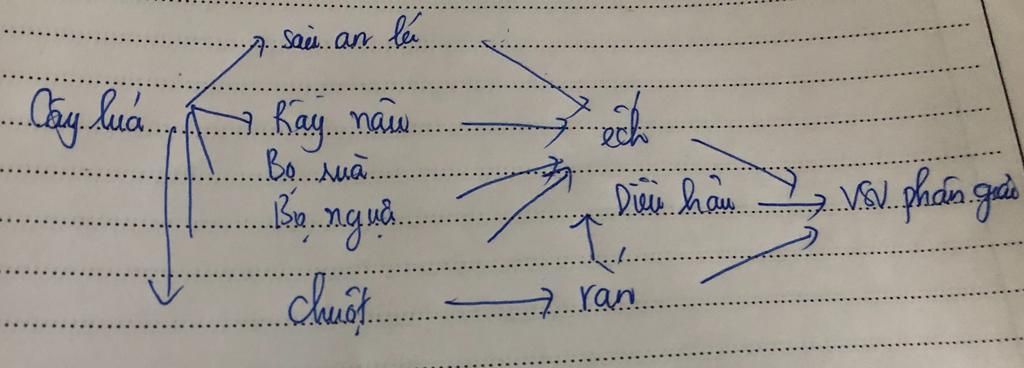 sâu ăn lá
Cây lúa Rầy nâu ếch
Bọ rùa
Bọ ngựa Diều hâu VSV phân giải
chuột rắn